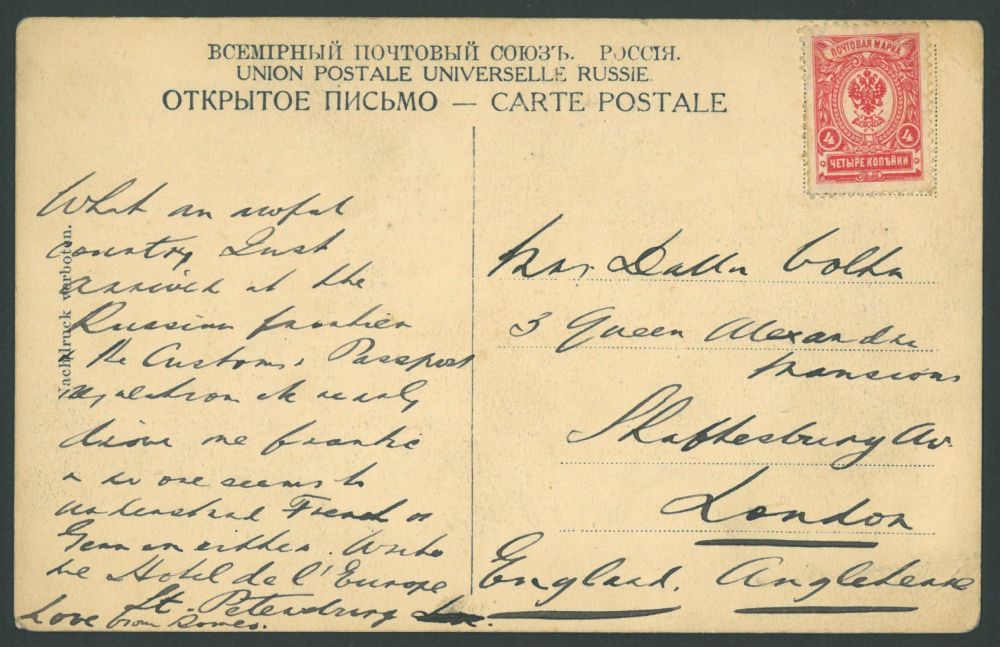 ВСЕМІРНЫЙ ПОЧТОВЫЙ СОЮЗЪ. РОССІЯ.
UNION POSTALE UNIVERSELLE RUSSIE.
ОТКРЫТОЕ ПИСЬМО — CARTE POSTALE
ПОЧТОВАЯ МАРКА
4 4
ЧЕТЫРЕ КОПѢЙКИ
Nachdruck verboten.
What an awful
country Just
arrived at the
Russian frontier
& the Customs, Passport
etc nearly
drove me frantic
& no one seems to
understand French or
German either. Write
me Hotel de l'Europe
St. Petersburg
Love from
Mrs Dalla
3 Queen Alexandra
Mansions
Shaftesbury Av.
London
England. Angleterre